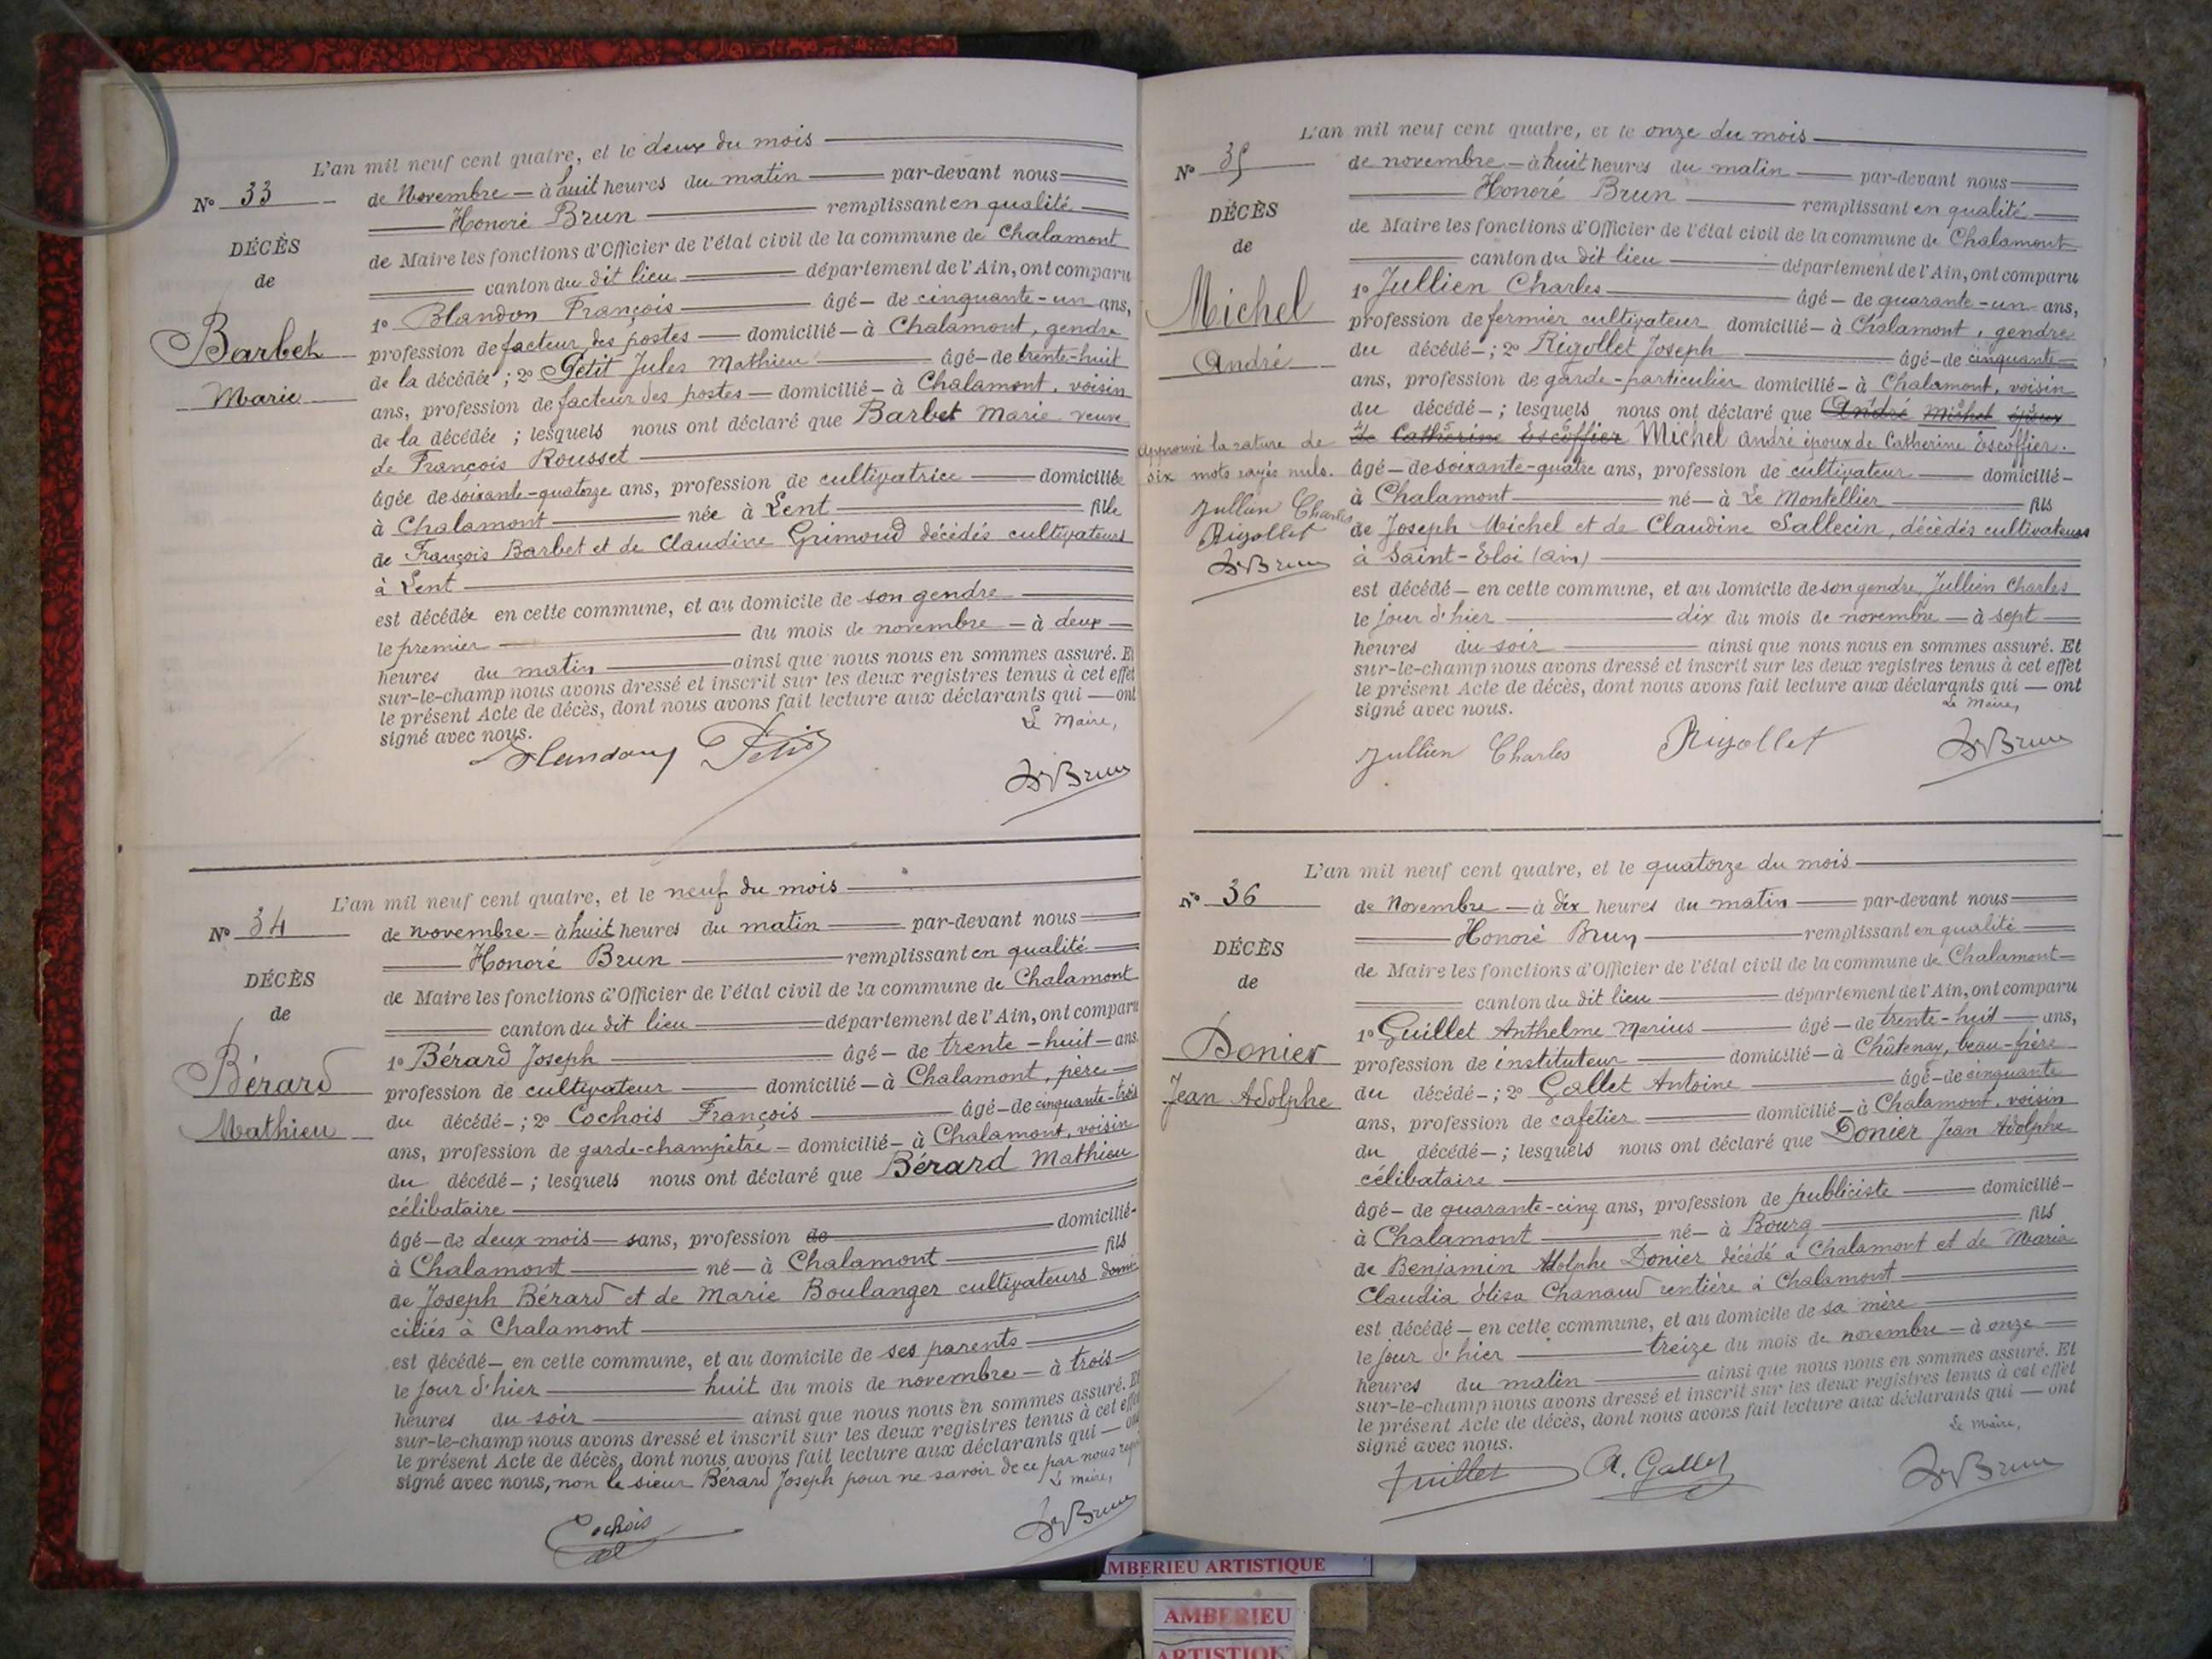 L'an mil neuf cent quatre, et le deux du mois
N° 33
de Novembre à huit heures du matin par-devant nous
Honoré Brun remplissant en qualité
DÉCÈS
de Maire les fonctions d'Officier de l'état civil de la commune de Chalamont
de
canton du dit lieu département de l'Ain, ont comparu
1° Blandon François âgé de cinquante-un ans,
Barbet
profession de facteur des postes domicilié à Chalamont, gendre
de la décédée ; 2° Petit Jules Mathieu âgé de trente-huit
Marie
ans, profession de facteur des postes domicilié à Chalamont, voisin
de la décédée ; lesquels nous ont déclaré que Barbet Marie veuve
de François Rousset
âgée de soixante-quatorze ans, profession de cultivatrice domiciliée
à Chalamont née à Lent fille
de François Barbet et de Claudine Grimoud décédés cultivateurs
à Lent
est décédée en cette commune, et au domicile de son gendre
le premier du mois de novembre à deux
heures du matin ainsi que nous nous en sommes assuré. Et
sur-le-champ nous avons dressé et inscrit sur les deux registres tenus à cet effet
le présent Acte de décès, dont nous avons fait lecture aux déclarants qui ont
signé avec nous.
Le Maire,
Petit
Brun
L'an mil neuf cent quatre, et le neuf du mois
N° 34
de novembre à huit heures du matin par-devant nous
Honoré Brun remplissant en qualité
DÉCÈS
de Maire les fonctions d'Officier de l'état civil de la commune de Chalamont
de
canton du dit lieu département de l'Ain, ont comparu
1° Bérard Joseph âgé de trente-huit ans
Bérard
profession de cultivateur domicilié à Chalamont, père
du décédé ; 2° Cochois François âgé de cinquante-trois
Mathieu
ans, profession de garde-champêtre domicilié à Chalamont, voisin
du décédé ; lesquels nous ont déclaré que Bérard Mathieu
célibataire
âgé de deux mois sans, profession de domicilié
à Chalamont né à Chalamont fils
de Joseph Bérard et de Marie Boulanger cultivateurs domi
ciliés à Chalamont
est décédé en cette commune, et au domicile de ses parents
le jour d'hier huit du mois de novembre à trois
heures du soir ainsi que nous nous en sommes assuré. Et
sur-le-champ nous avons dressé et inscrit sur les deux registres tenus à cet effet
le présent Acte de décès, dont nous avons fait lecture aux déclarants qui ont
signé avec nous, non le sieur Bérard Joseph pour ne savoir de ce par nous requis
Le maire,
Cochois
Brun
L'an mil neuf cent quatre, et le onze du mois
N° 35
de novembre à huit heures du matin par-devant nous
Honoré Brun remplissant en qualité
DÉCÈS
de Maire les fonctions d'Officier de l'état civil de la commune de Chalamont
de
canton du dit lieu département de l'Ain, ont comparu
1° Jullien Charles âgé de quarante-un ans,
Michel
profession de fermier cultivateur domicilié à Chalamont, gendre
du décédé ; 2° Rigollet Joseph âgé de cinquante
André
ans, profession de garde-particulier domicilié à Chalamont, voisin
du décédé ; lesquels nous ont déclaré que André Michel époux
de Catherine Escoffier Michel André époux de Catherine Escoffier.
Approuvé la rature de
six mots rayés nuls.
Jullien Charles
Rigollet
Brun
âgé de soixante-quatre ans, profession de cultivateur domicilié
à Chalamont né à Le Montellier fils
de Joseph Michel et de Claudine Sallecin, décédés cultivateurs
à Saint-Eloi (Ain)
est décédé en cette commune, et au domicile de son gendre, Jullien Charles
le jour d'hier dix du mois de novembre à sept
heures du soir ainsi que nous nous en sommes assuré. Et
sur-le-champ nous avons dressé et inscrit sur les deux registres tenus à cet effet
le présent Acte de décès, dont nous avons fait lecture aux déclarants qui ont
signé avec nous.
Le Maire,
Jullien Charles Rigollet Brun
L'an mil neuf cent quatre, et le quatorze du mois
N° 36
de Novembre à dix heures du matin par-devant nous
Honoré Brun remplissant en qualité
DÉCÈS
de Maire les fonctions d'Officier de l'état civil de la commune de Chalamont
de
canton du dit lieu département de l'Ain, ont comparu
1° Guillet Anthelme Marius âgé de trente-huit ans,
Donier
profession de instituteur domicilié à Châtenay, beau-frère
du décédé ; 2° Gallet Antoine âgé de cinquante
Jean Adolphe
ans, profession de cafetier domicilié à Chalamont, voisin
du décédé ; lesquels nous ont déclaré que Donier Jean Adolphe
célibataire
âgé de quarante-cinq ans, profession de publiciste domicilié
à Chalamont né à Bourg fils
de Benjamin Adolphe Donier décédé à Chalamont et de Maria
Claudia Élisa Chanaud rentière à Chalamont
est décédé en cette commune, et au domicile de sa mère
le jour d'hier treize du mois de novembre à onze
heures du matin ainsi que nous nous en sommes assuré. Et
sur-le-champ nous avons dressé et inscrit sur les deux registres tenus à cet effet
le présent Acte de décès, dont nous avons fait lecture aux déclarants qui ont
signé avec nous.
Le maire,
Guillet A. Gallet Brun
AMBERIEU ARTISTIQUE
AMBERIEU
ARTISTIQUE